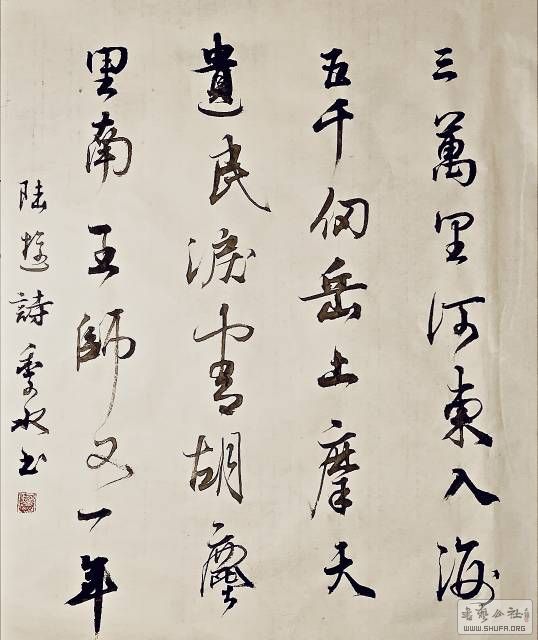 三萬里河東入海
五千仞岳上摩天
遺民淚盡胡塵
里南王師又一年
陸遊詩 季水书
书艺公社
WWW.SHUFA.ORG